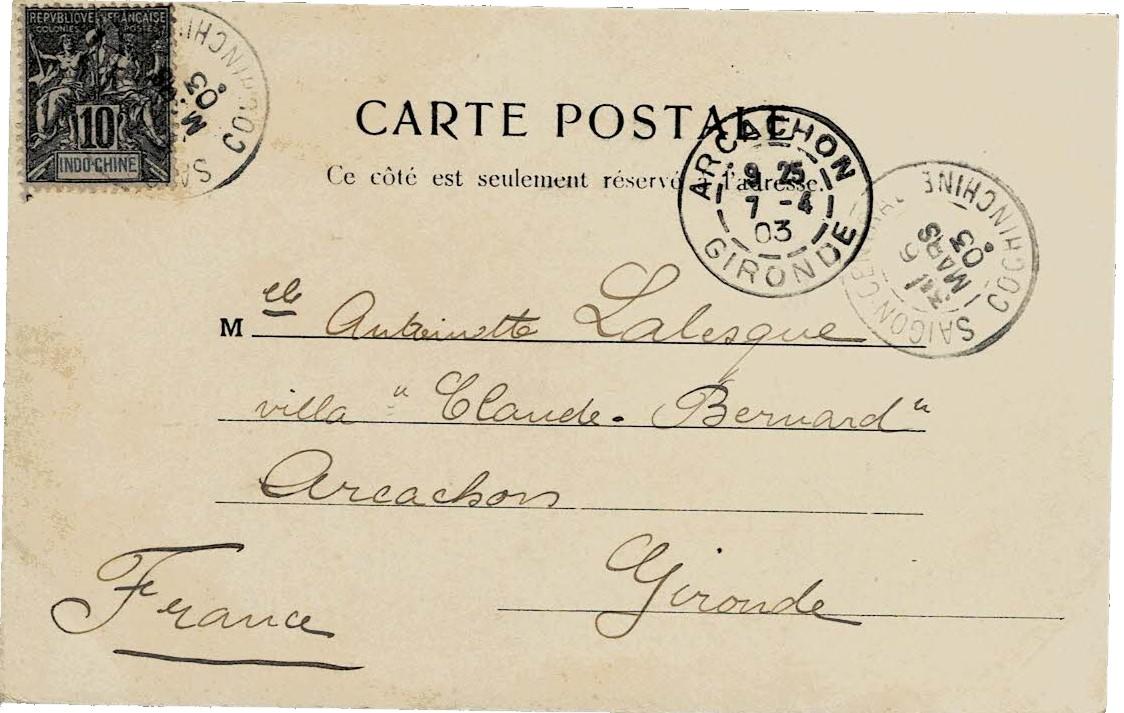 REPVBLIQVE FRANÇAISE
COLONIES POSTES
10
INDO-CHINE
COCHINCHINE
03
CARTE POSTALE
Ce côté est seulement réservé à l'adresse.
ARCACHON
9 25
7 -4
03
GIRONDE
SAIGON CENTRAL
COCHINCHINE
6
MARS
03
Melle Antoinette Lalesque
villa "Claude-Bernard"
Arcachon
Gironde
France